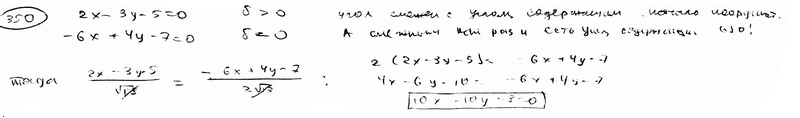 350 2x - 3y - 5 = 0 δ > 0 угол смежен с углом, содержащим начало координат.
-6x + 4y - 7 = 0 δ < 0 А смежный как раз и есть угол содержащий (·)0!
тогда 2x - 3y - 5 / √13 = -6x + 4y - 7 / 2√13 :
2 (2x - 3y - 5) = -6x + 4y - 7
4x - 6y - 10 = -6x + 4y - 7
10x - 10y - 3 = 0